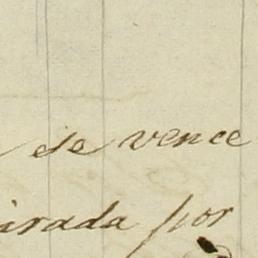 de vence
irada por